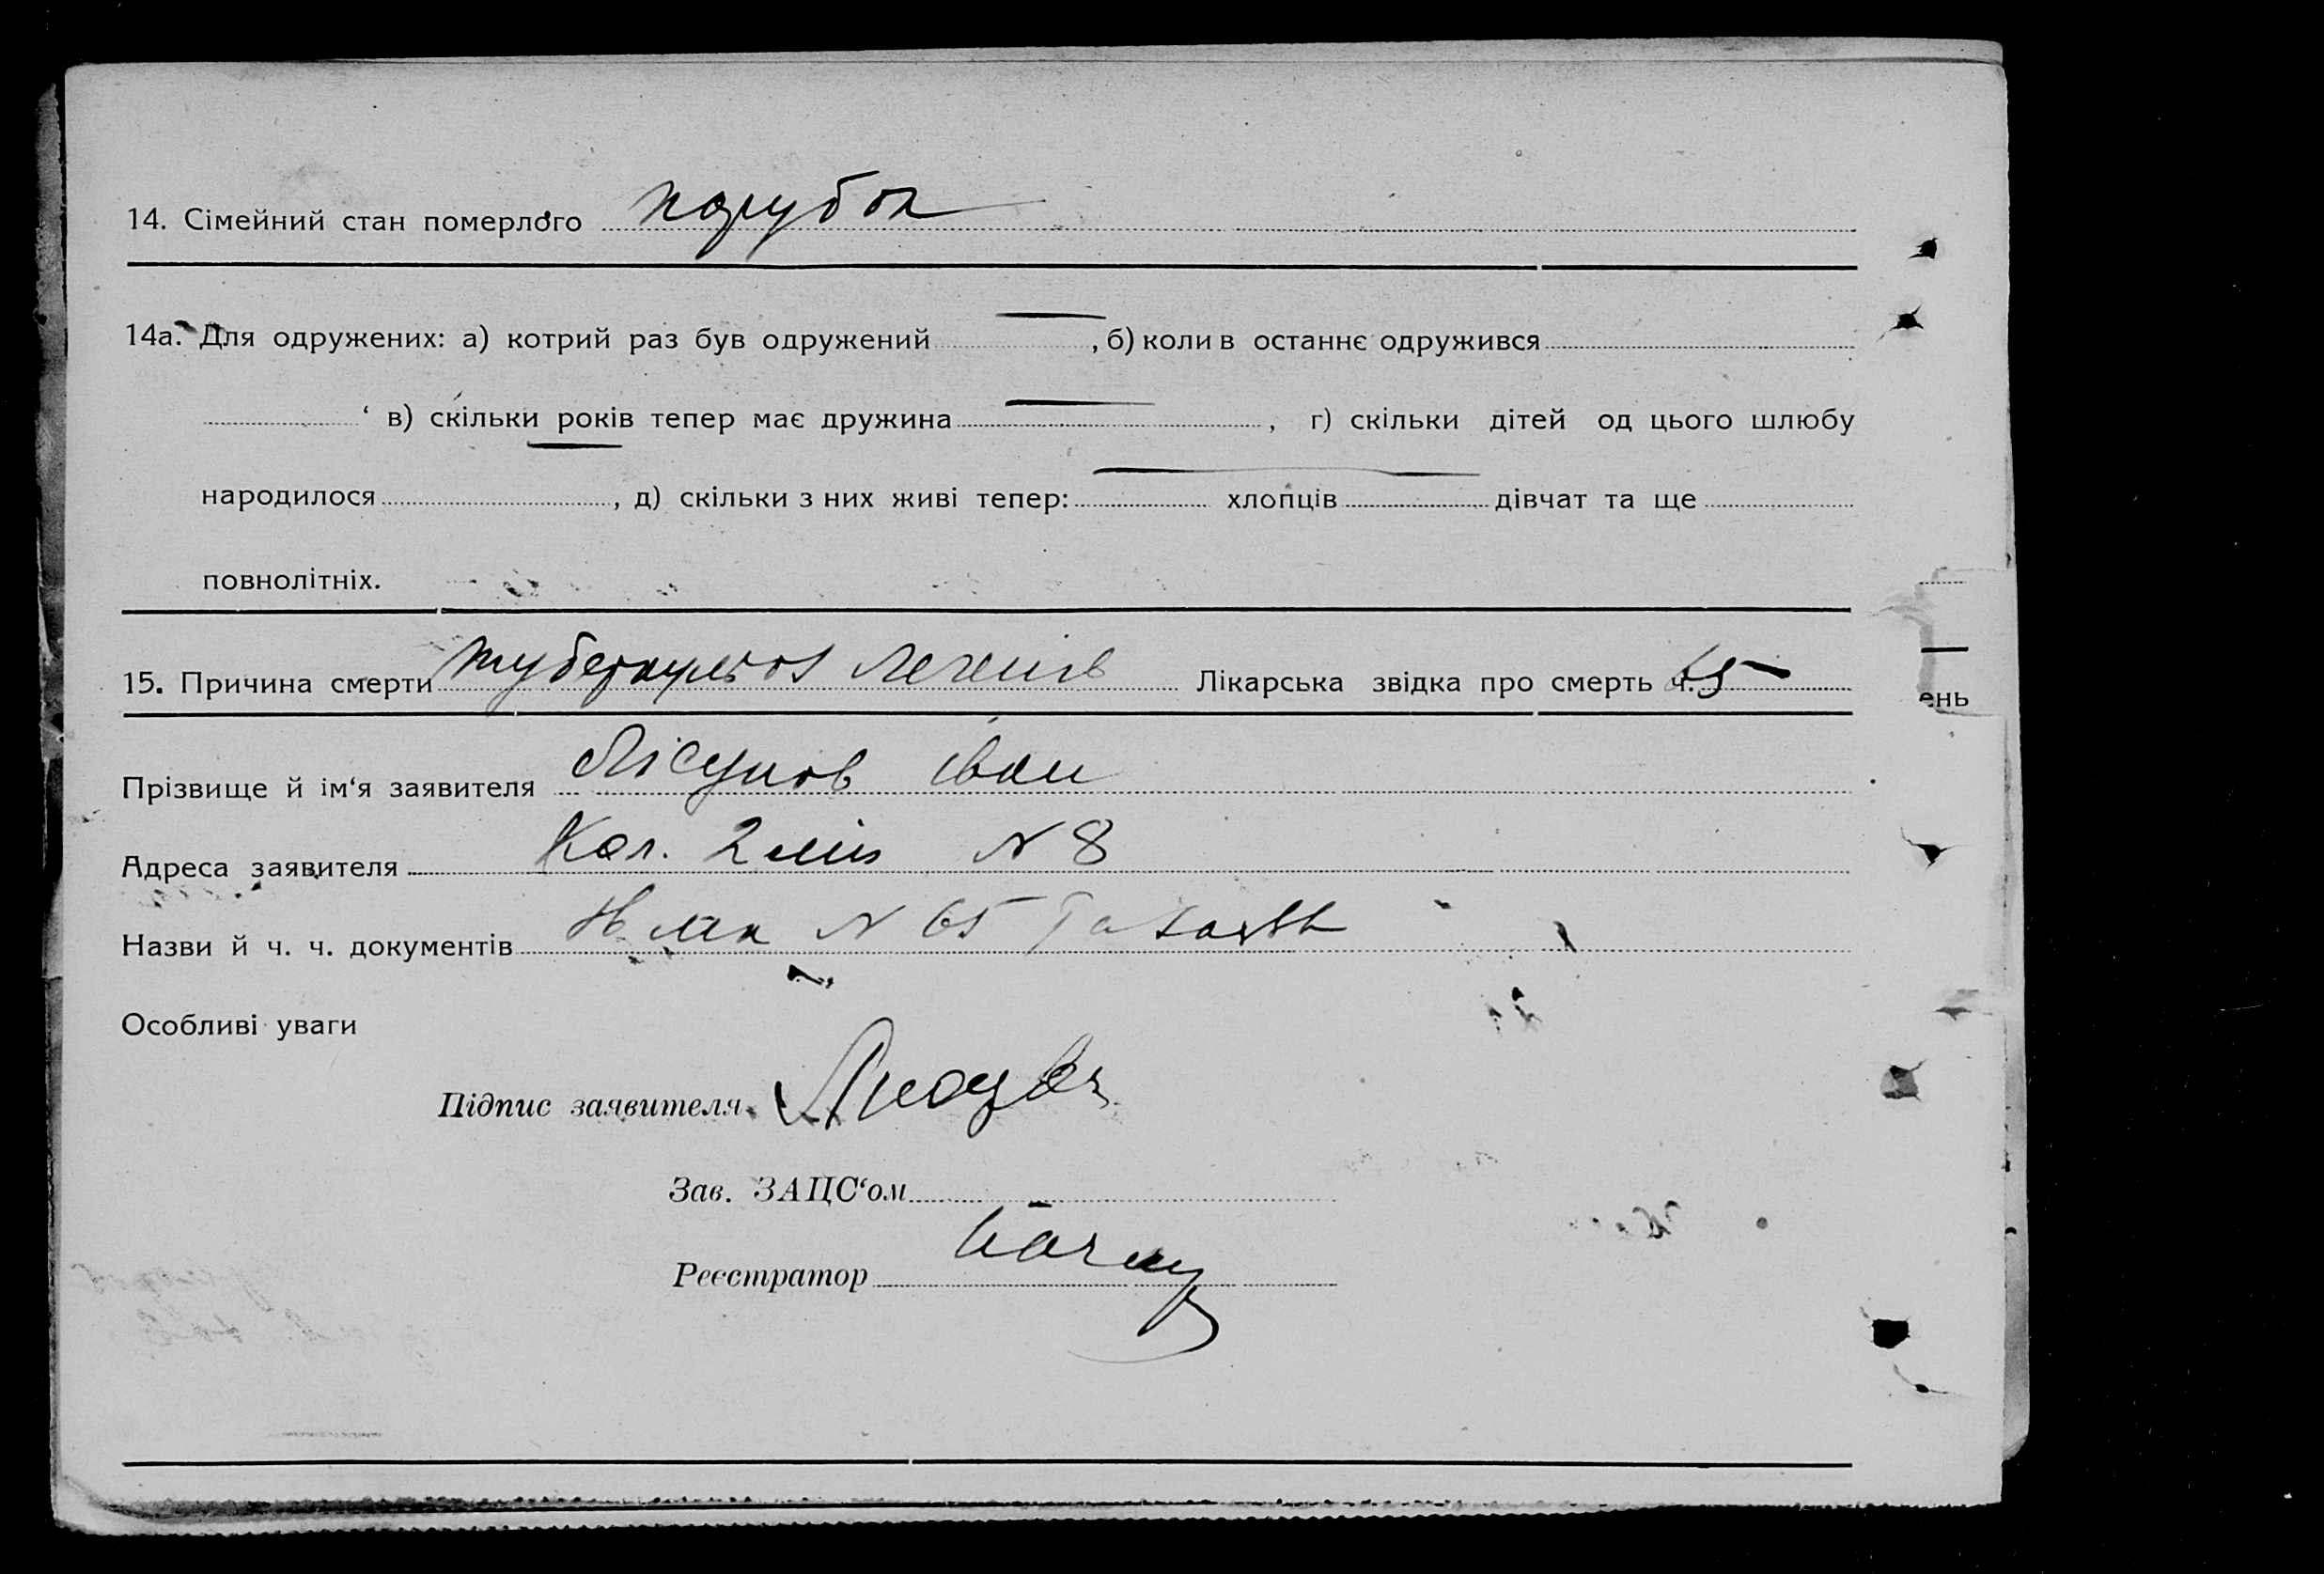 14. Сімейний стан померлого парубок
14а. Для одружених: а) котрий раз був одружений — , б) коли в останнє одружився
‘ в) скільки років тепер має дружина — , г) скільки дітей од цього шлюбу
народилося — , д) скільки з них живі тепер: — хлопців — дівчат та ще
повнолітніх.
15. Причина смерти туберкульоз легенів Лікарська звідка про смерть ч. 65
ень
Прізвище й ім‘я заявителя Лісунов Іван
Адреса заявителя Кол. 2 лін N 8
Назви й ч. ч. документів N 65
Особливі уваги
Підпис заявителя
Зав. ЗАЦС‘ом
Реєстратор